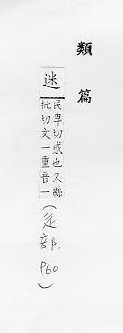 類篇
迷
民卑切惑也又緜
批切文一重音一
(辵部, P60)